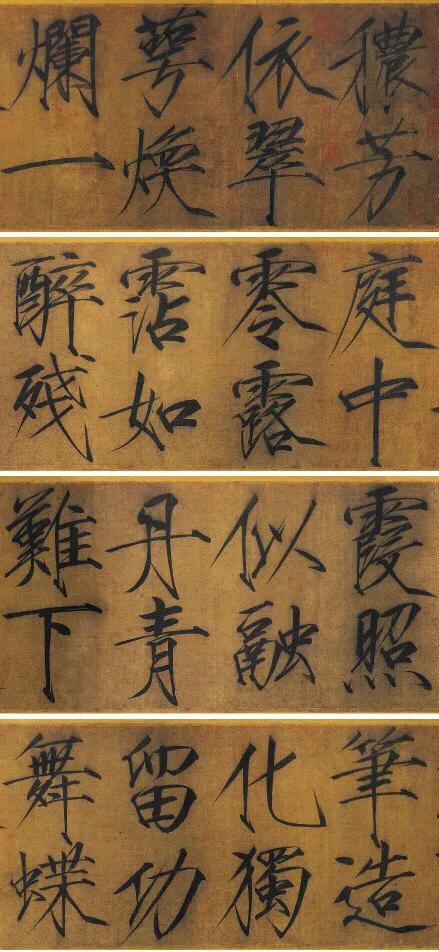 穠芳
依翠
萼煥
爛一
庭中
零露
霑如
醉殘
霞照
似融
丹青
難下
筆造
化獨
留功
舞蝶